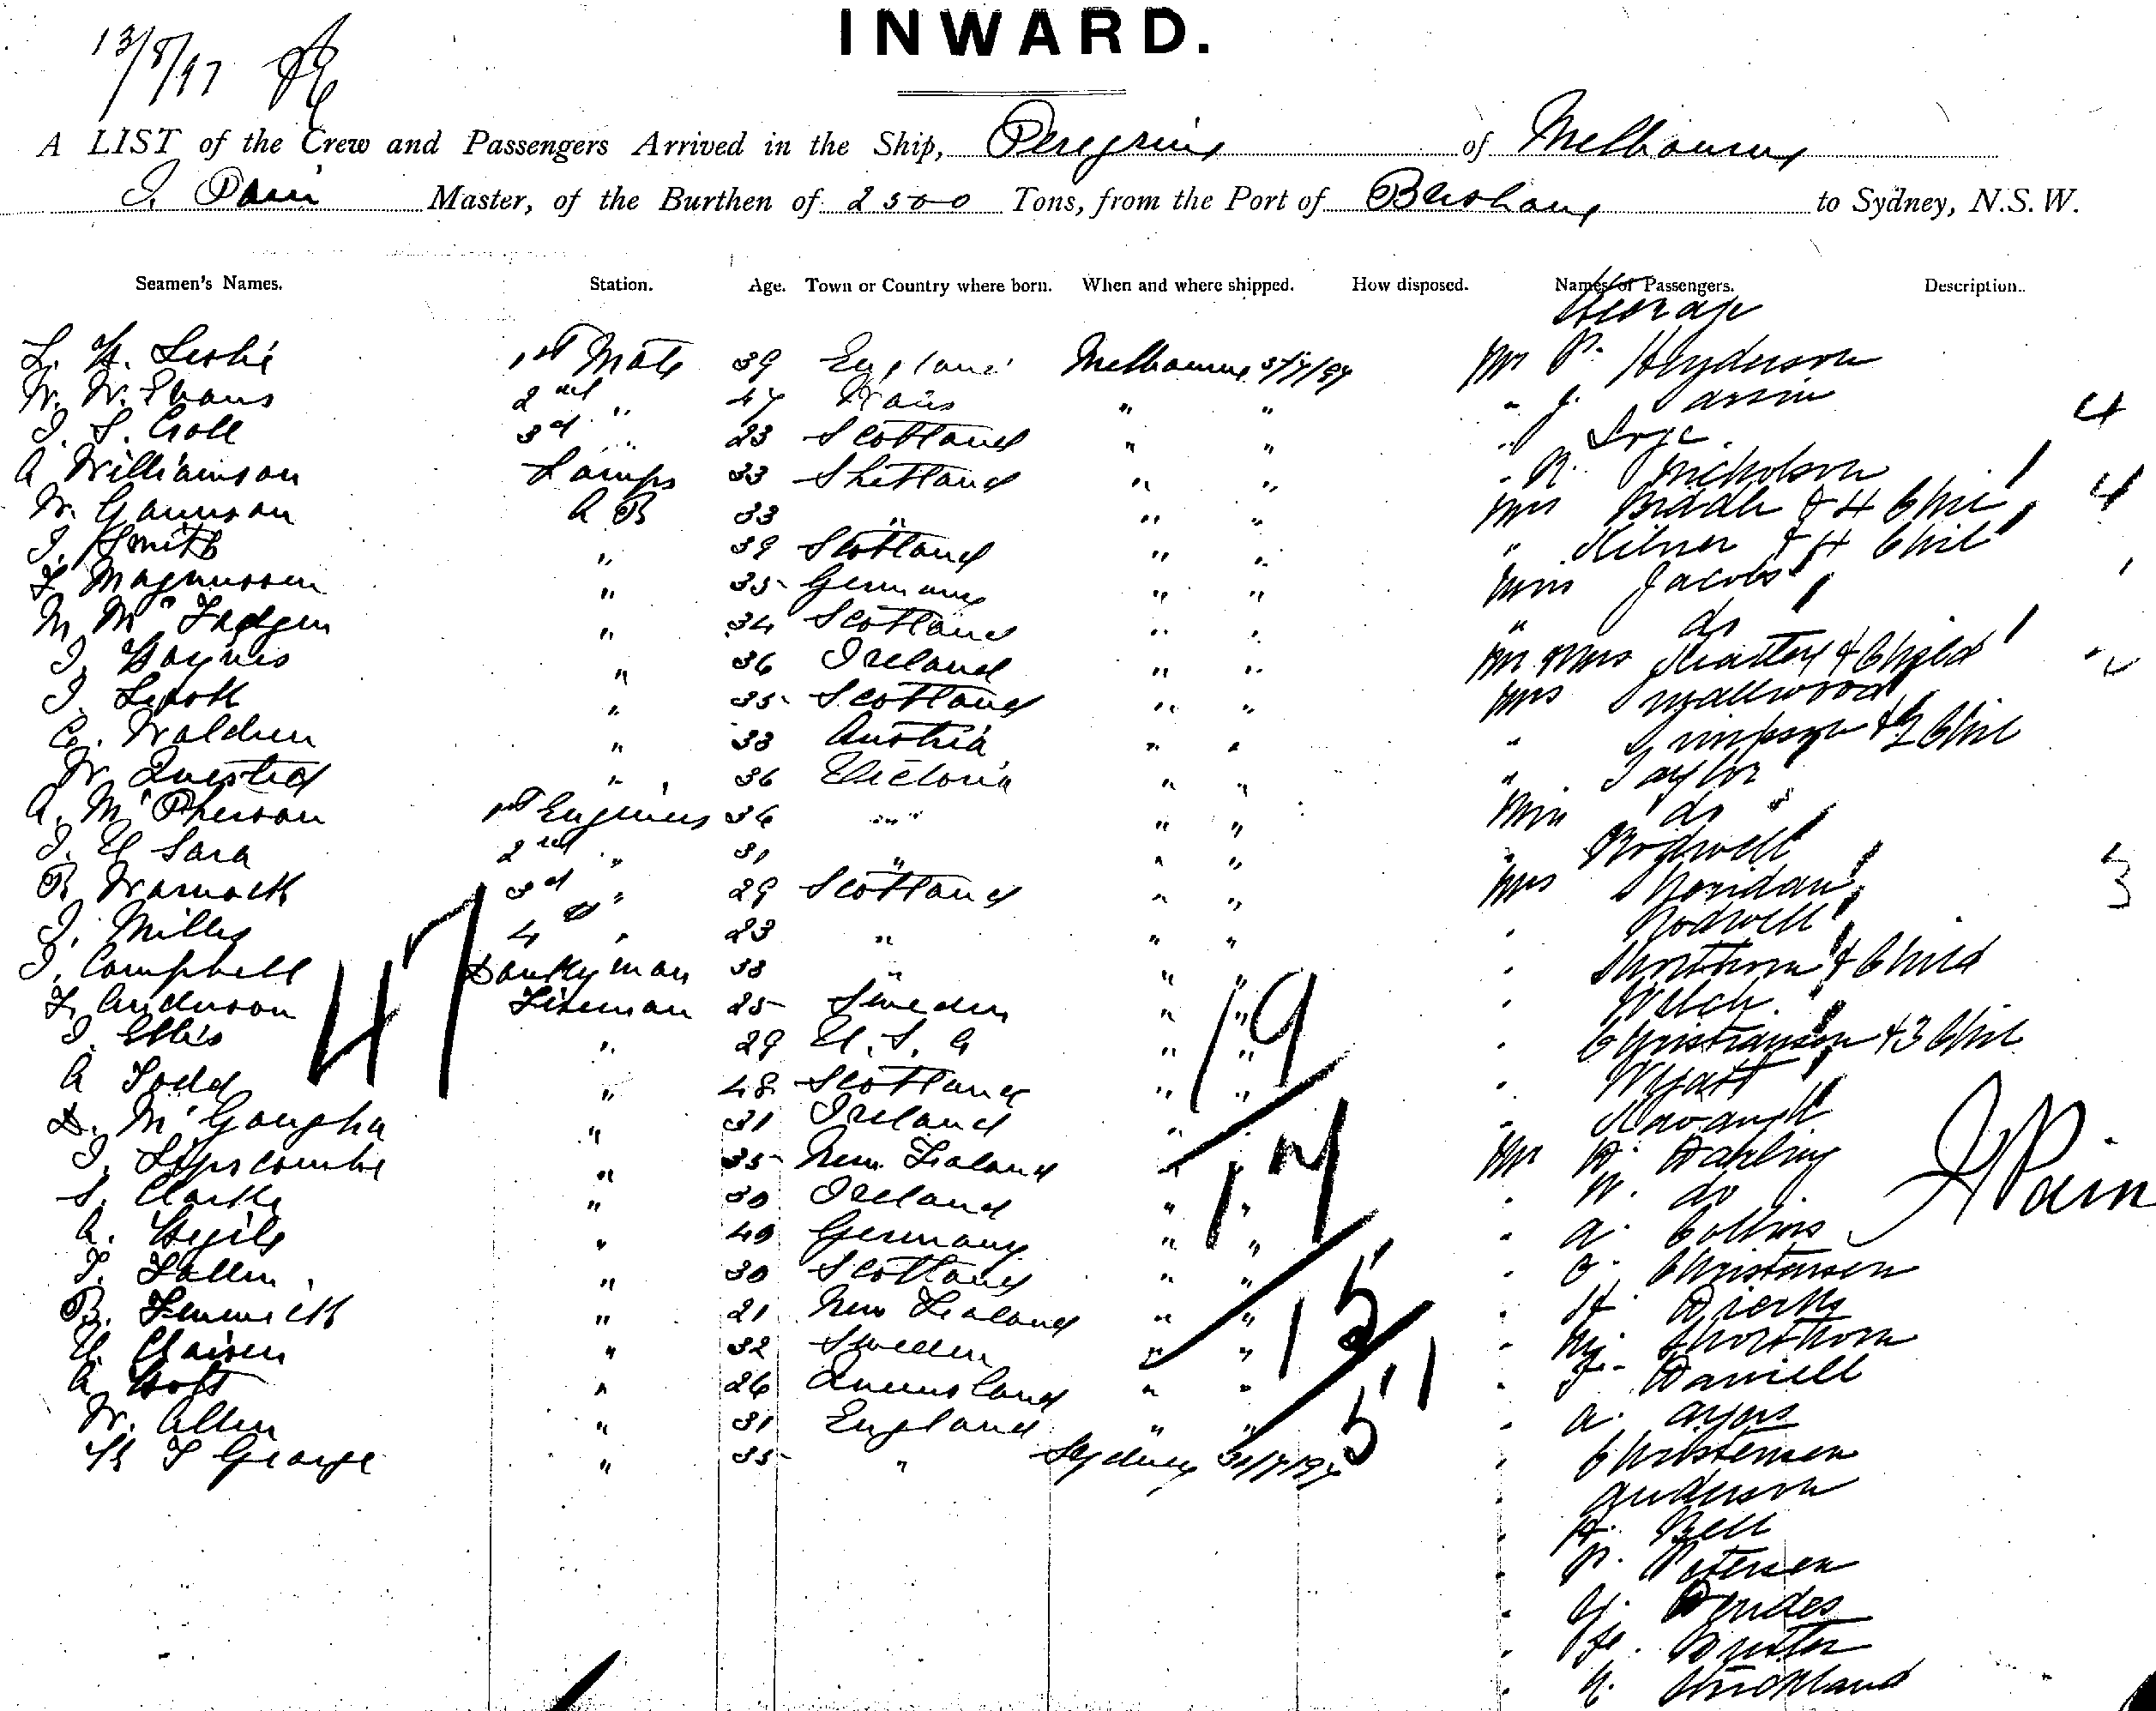 INWARD.
13/8/97
A LIST of the Crew and Passengers Arrived in the Ship, Peregrine of Melbourne
J. Pain Master, of the Burthen of 2500 Tons, from the Port of Brisbane to Sydney, N.S.W.
Seamen's Names. Station. Age. Town or Country where born. When and where shipped. How disposed. Names of Passengers. Description.
Steerage
L. H. Leslie 1st Mate 39 England Melbourne 3/7/97 Mr P. Henderson
W. W. Evans 2nd " 47 Wales " " " J.
J. S. Coll 3rd " 23 Scotland " " 4
A Williamson Lamps 33 Shetland " " " R. Nicholson
W. Gaunson A B 33 " " " Mrs Biddle & 4 Chil 4
J. Smith " 39 Scotland " " " Milner & 4 Chil
F Magnussen " 35 Germany " " Miss Jacobs 1
M McFadgen " 34 Scotland " " " do
J. Haynes " 36 Ireland " " Mr & Mrs Slattery & Child
J. " 35 Scotland " " Mrs Smallwood
C. Waldren " 33 Austria " " " Simpson & 2 Chil
W. Quested " 36 Victoria " " " Taylor
A. McPherson 1st Engineer 36 " " " Miss do
J. H Sara 2nd " 31 " " " " Rodwell
R Warnock 3rd " 29 Scotland " " Mrs Sheridan 3
J. Miller 4th " 23 " " " " Rodwell
J. Campbell Donkeyman 38 " " " " Shorthorn & Child
F. Anderson Fireman 25 Sweden " " " Welch
J. Ellis " 29 U.S.A " " " Christiansen & 3 Chil
A Todd " 48 Scotland " " " Wyatt
D. McGougha " 31 Ireland " " " Kavangh
J. Lipscombe " 35 New Zealand " " Mr H. Darling
S. Clarke " 30 Ireland " " " W. do
A. " 40 Germany " " " A. Collins
T. Fallen " 30 Scotland " " " O. Christensen
B. Fenwick " 21 New Zealand " " " H. Dierks
U. Claisen " 32 Sweden " " " Shorthorn
A Holt " 26 Queensland " " " J. Daniell
W. Allen " 31 England " " " A. Ayers
H J George " 35 " Sydney 31/7/97 " Christensen
" Anderson
" H. Bell
" P. Petersen
"
"
" Strickland
47
19
17
15
51
J Pain